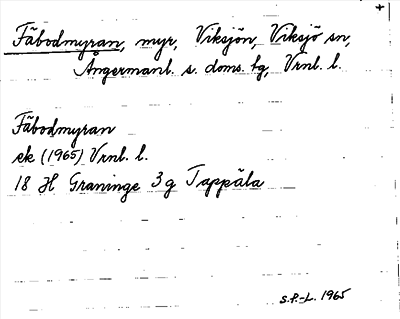 +
Fäbodmyran, myr, Viksjön, Viksjö sn,
Ångermanl. s. doms. tg, Vrnl. l.
Fäbodmyran
ek (1965) Vrnl. l.
18 H Graninge 3g Tappäla
S.P.-L. 1965